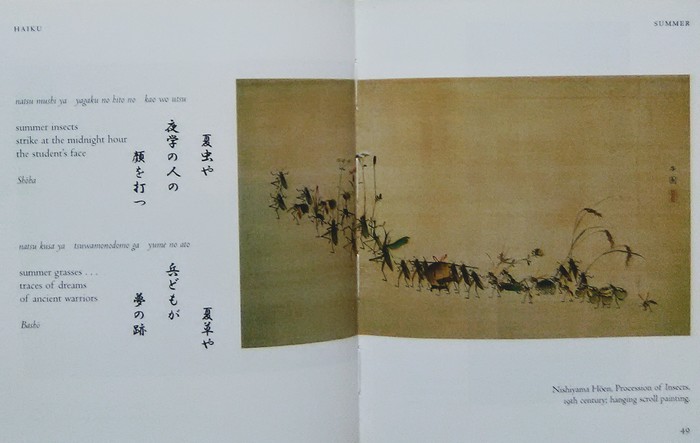 HAIKU
natsu mushi ya yagaku no hito no kao wo utsu
summer insects
strike at the midnight hour
the student's face
Shōha
夏虫や
夜学の人の
顔を打つ
natsu kusa ya tsuwamonodomo ga yume no ato
summer grasses . . .
traces of dreams
of ancient warriors
Bashō
夏草や
兵どもが
夢の跡
SUMMER
Nishiyama Hōen, Procession of Insects,
19th century; hanging scroll painting.
49